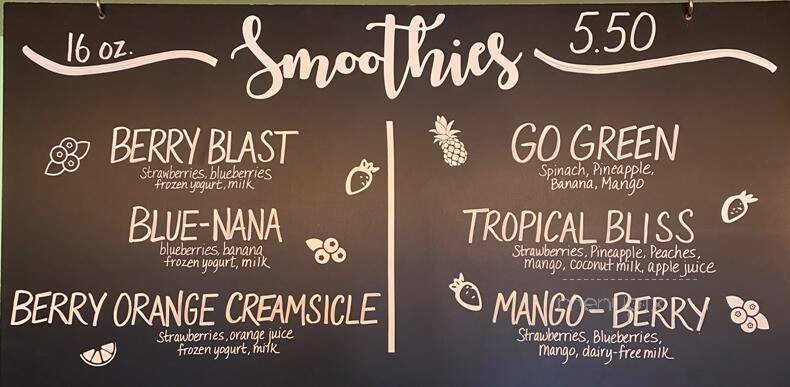 16 oz.
Smoothies
5.50
BERRY BLAST
Strawberries, blueberries
frozen yogurt, milk
BLUE-NANA
blueberries, banana
frozen yogurt, milk
BERRY ORANGE CREAMSICLE
Strawberries, orange juice
frozen yogurt, milk
GO GREEN
Spinach, Pineapple,
Banana, Mango
TROPICAL BLISS
Strawberries, Pineapple, Peaches,
mango, coconut milk, apple juice
MANGO-BERRY
Strawberries, Blueberries,
Mango, dairy-free milk